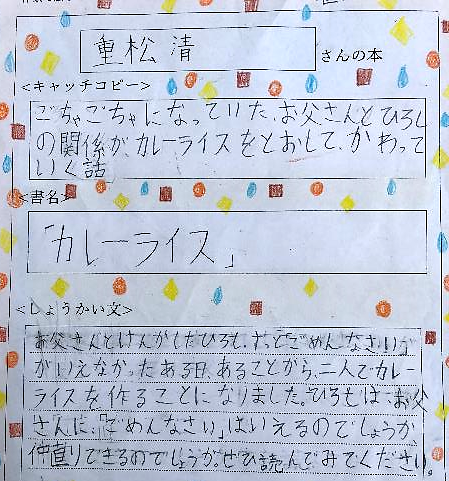 重松清
さんの本
<キャッチコピー>
ごちゃごちゃになっていた、お父さんとひろし
の関係が、カレーライスをとおして、かわって
いく話
<書名>
「カレーライス」
<しょうかい文>
お父さんとけんかしたひろし。ずっとごめんなさい
がいえなかったある日、あることから、二人でカレー
ライスを作ることになりました。ひろしは、お父
さんに、「ごめんなさい」はいえるのでしょうか、
仲直りできるのでしょうか。ぜひ読んでみてください。